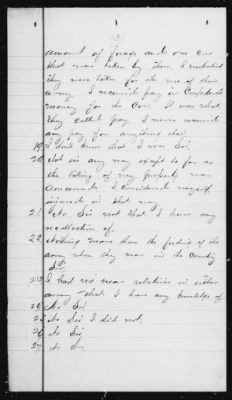 amount of forage and one Cow
that was taken by them I understood
they were taken for the use of their
army. I received pay in Confederate
money for the Corn. It was what
they called pay. I never received
any pay for anything else.
19 I don't know that I was Sir.
20 Not in any way except so far as
the taking of my property was
concerned I considered myself
injured in that way.
21 No Sir not that I have any
recollection of.
22 Nothing more than the feeding of the
army when they was in the County
Sir.
23 I had no near relatives in either
army that I have any knowledge of
24 No Sir.
25 No Sir I did not.
26 No Sir.
27 No Sir.